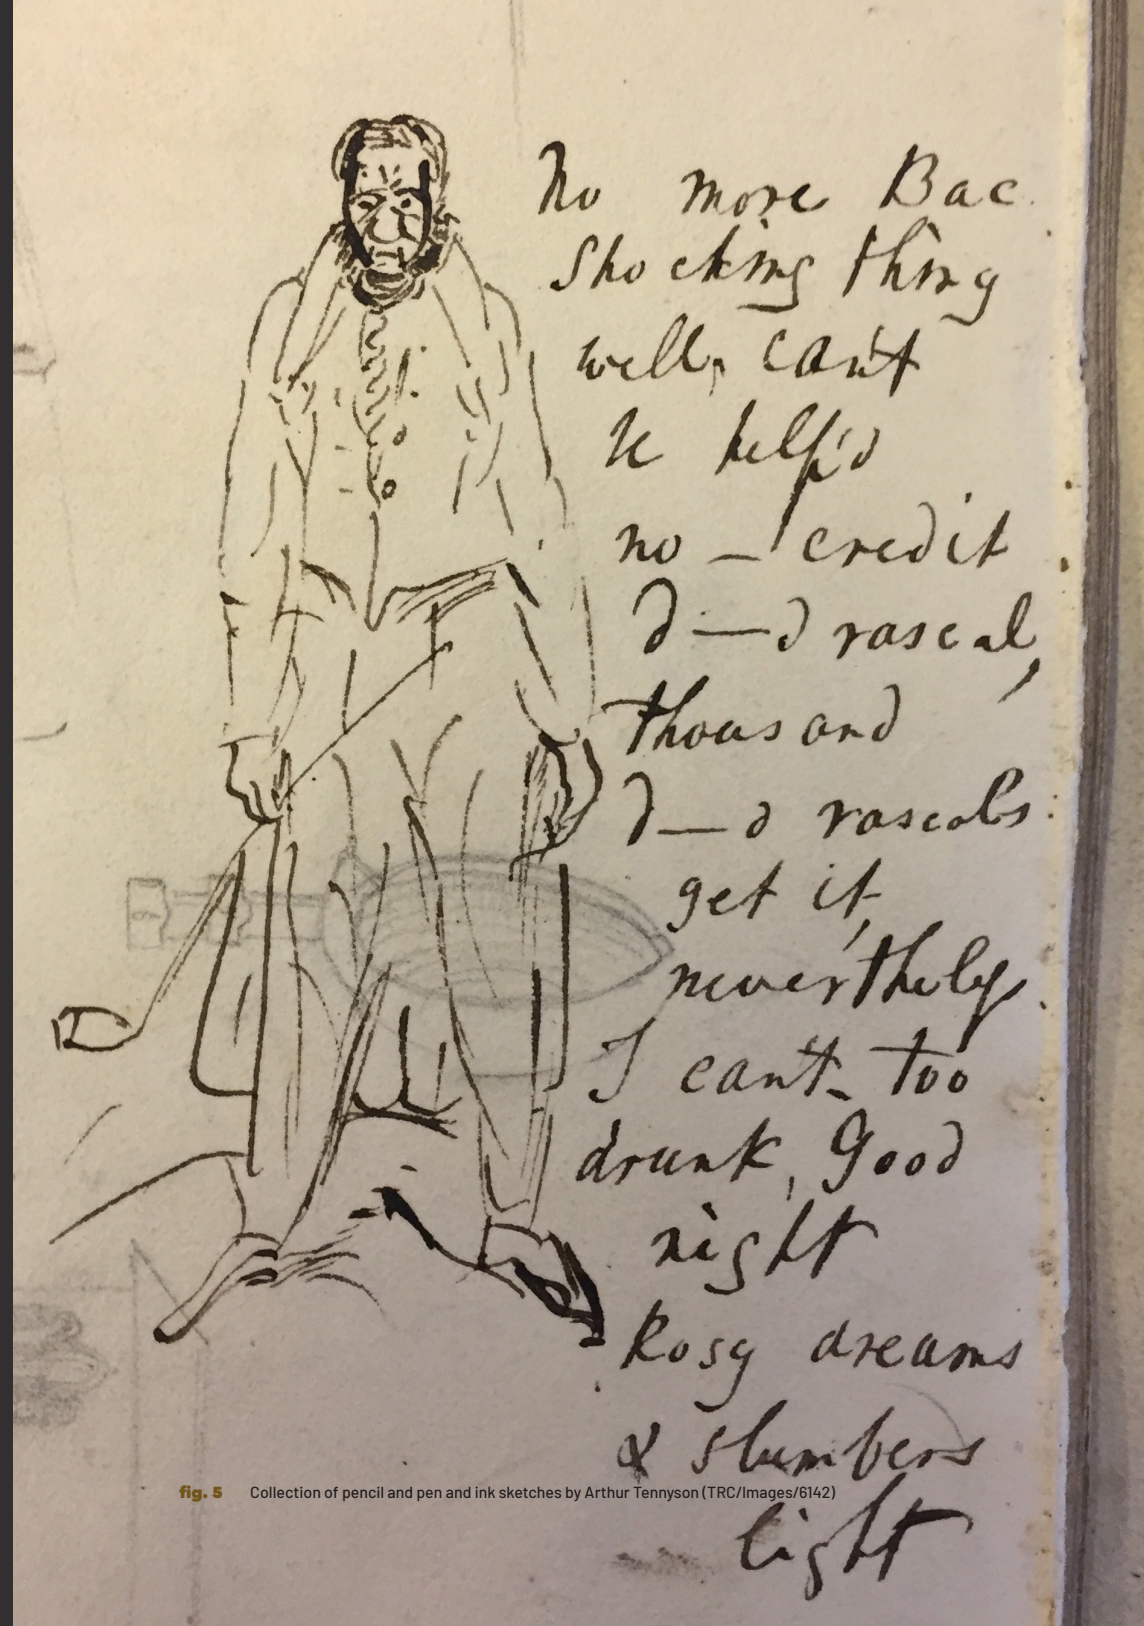 No more Bac.
Shocking thing
well, can't
be help'd
no — credit
d—d rascal,
thousand
d—d rascals
get it,
never'theless.
I can't too
drunk, Good
night
Rosy dreams
& slumbers
fig. 5 Collection of pencil and pen and ink sketches by Arthur Tennyson (TRC/Images/6142)
light